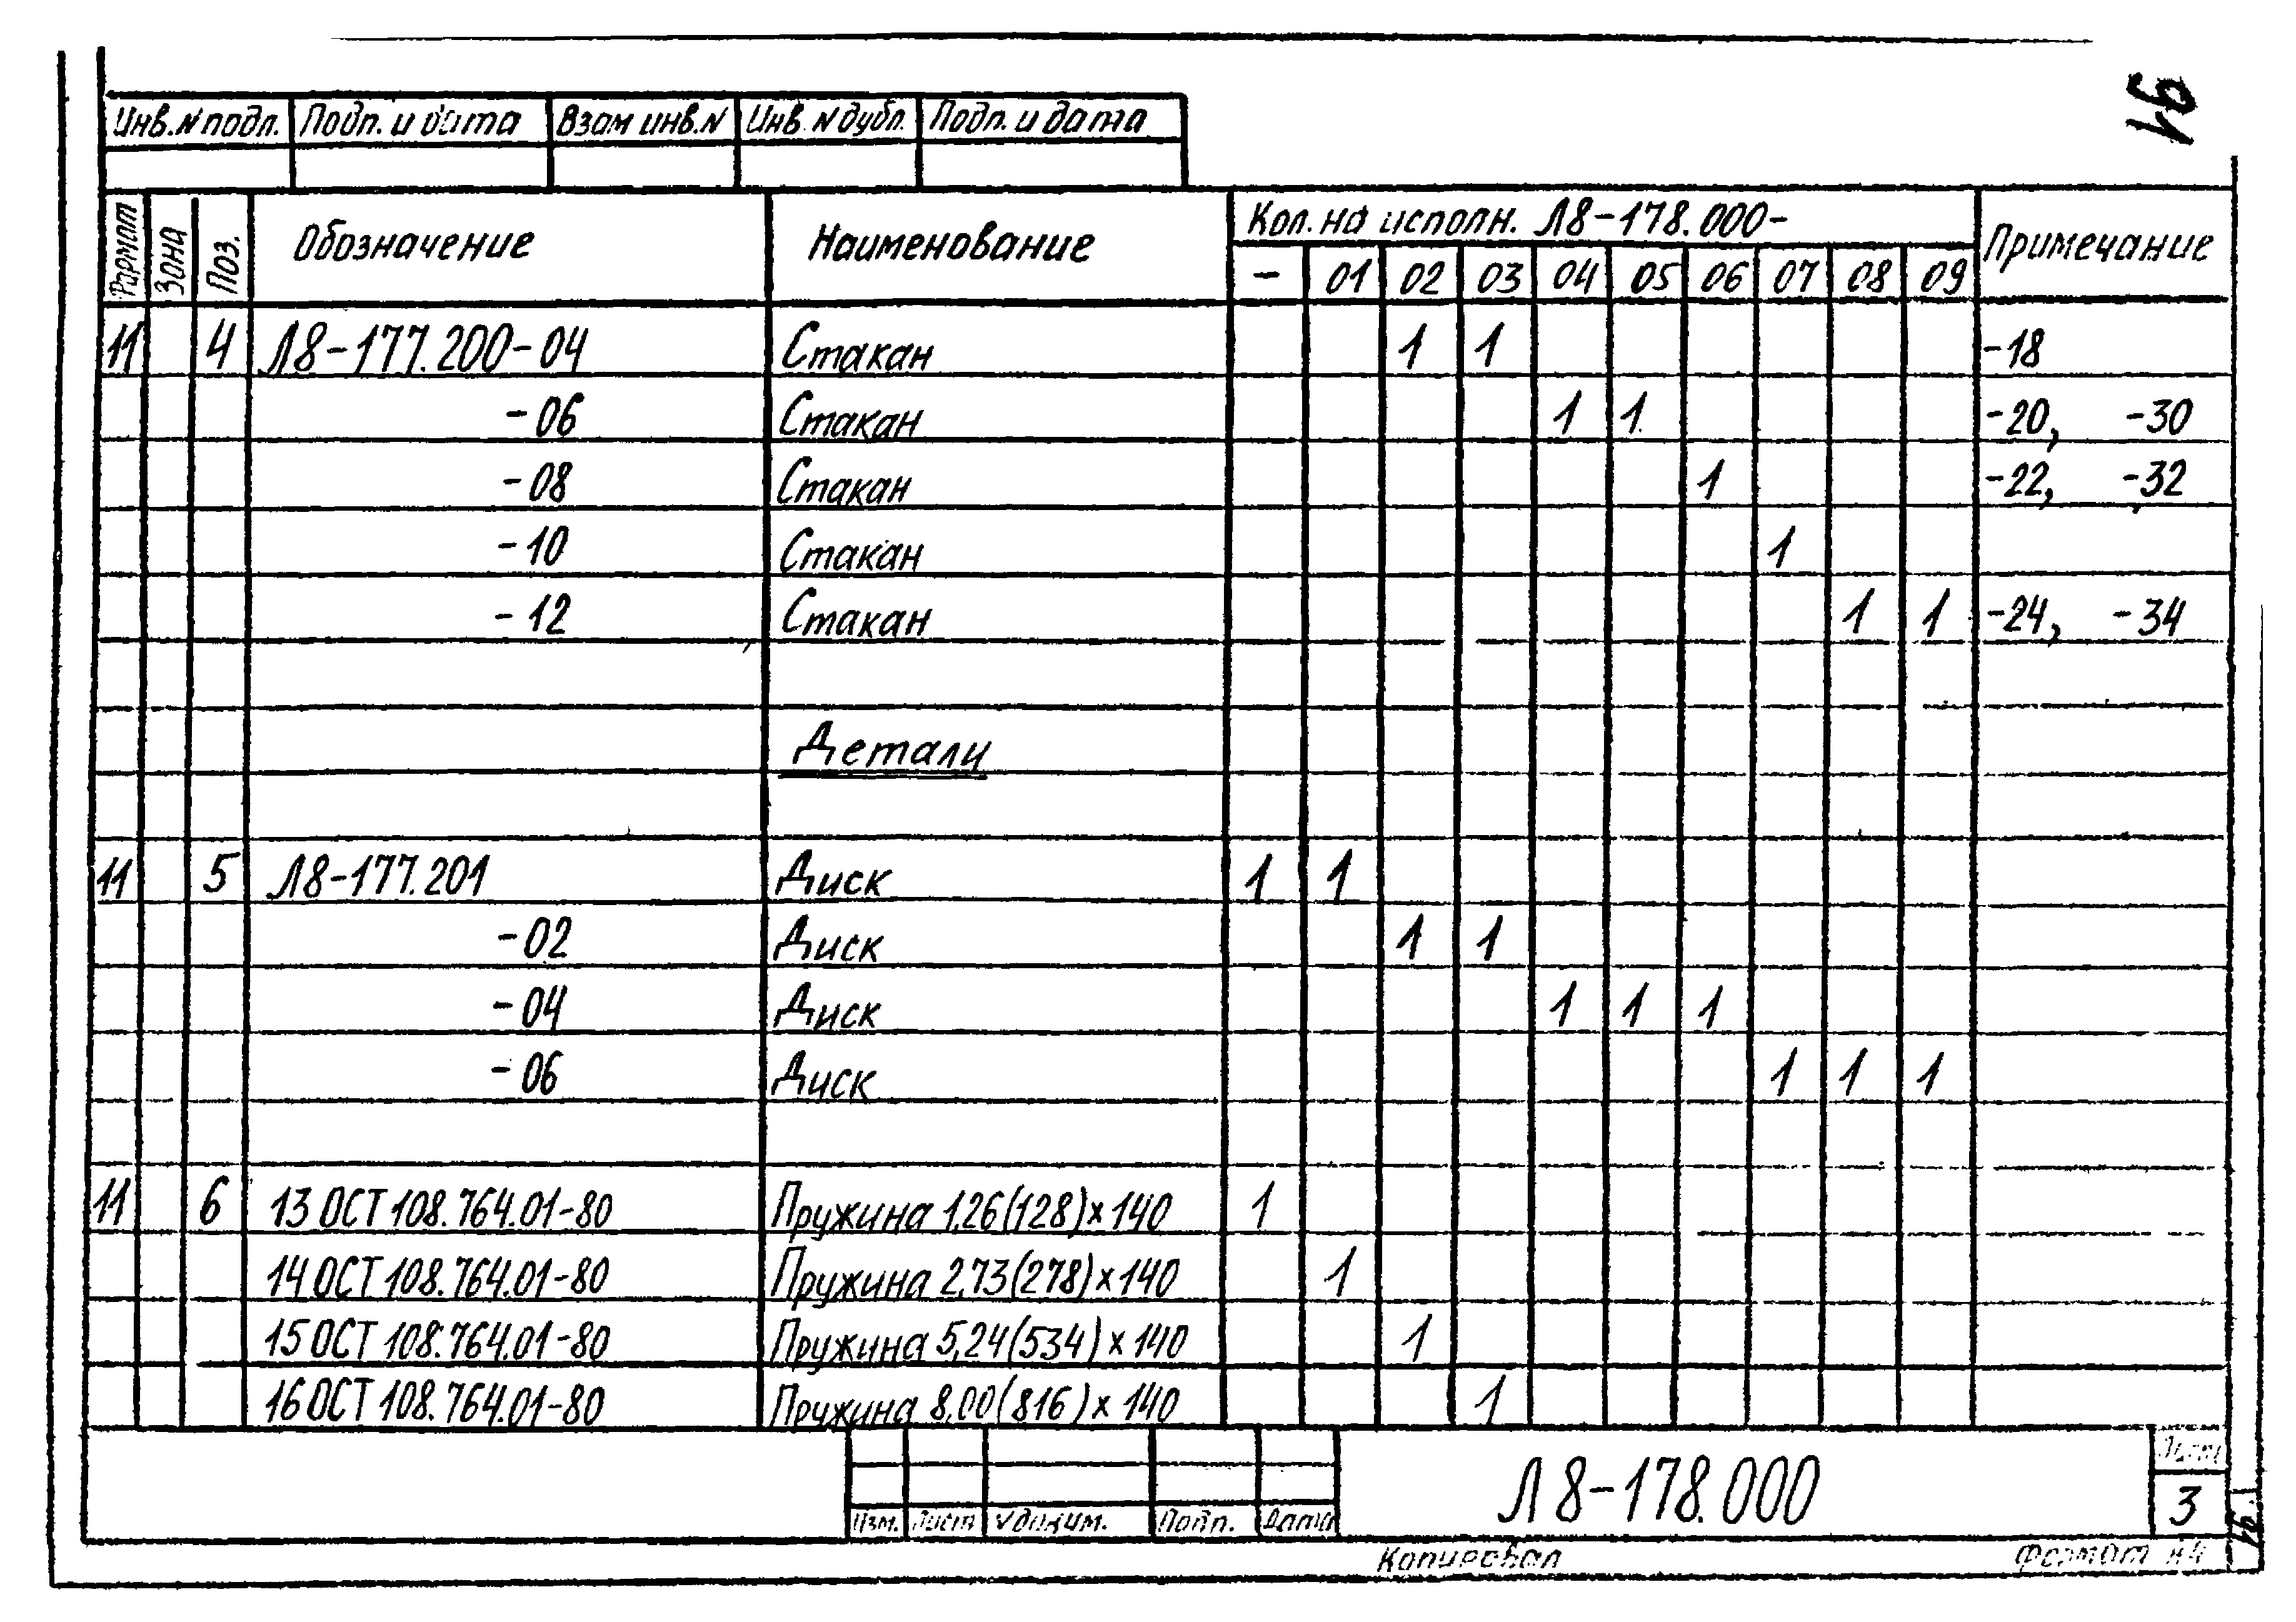 91
Инв.N подл. Подп. и дата Взам инв.N Инв.N дубл. Подп. и дата
Формат Зона Поз. Обозначение Наименование Кол. на исполн. Л8-178.000- Примечание
- 01 02 03 04 05 06 07 08 09
11 4 Л8-177.200-04 Стакан 1 1 -18
-06 Стакан 1 1 -20, -30
-08 Стакан 1 -22, -32
-10 Стакан 1
-12 Стакан 1 1 -24, -34
Детали
11 5 Л8-177.201 Диск 1 1
-02 Диск 1 1
-04 Диск 1 1 1
-06 Диск 1 1 1
11 6 13 ОСТ 108.764.01-80 Пружина 1,26(128)х140 1
14 ОСТ 108.764.01-80 Пружина 2,73(278)х140 1
15 ОСТ 108.764.01-80 Пружина 5,24(534)х140 1
16 ОСТ 108.764.01-80 Пружина 8,00(816)х140 1
Л8-178.000
Лист
3
Изм. Лист N докум. Подп. Дата
Копировал Формат